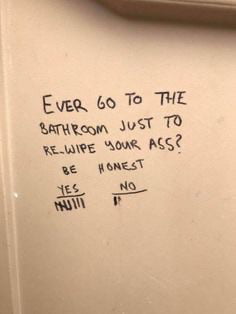 EVER GO TO THE
BATHROOM JUST TO
RE-WIPE YOUR ASS?
BE HONEST
YES NO